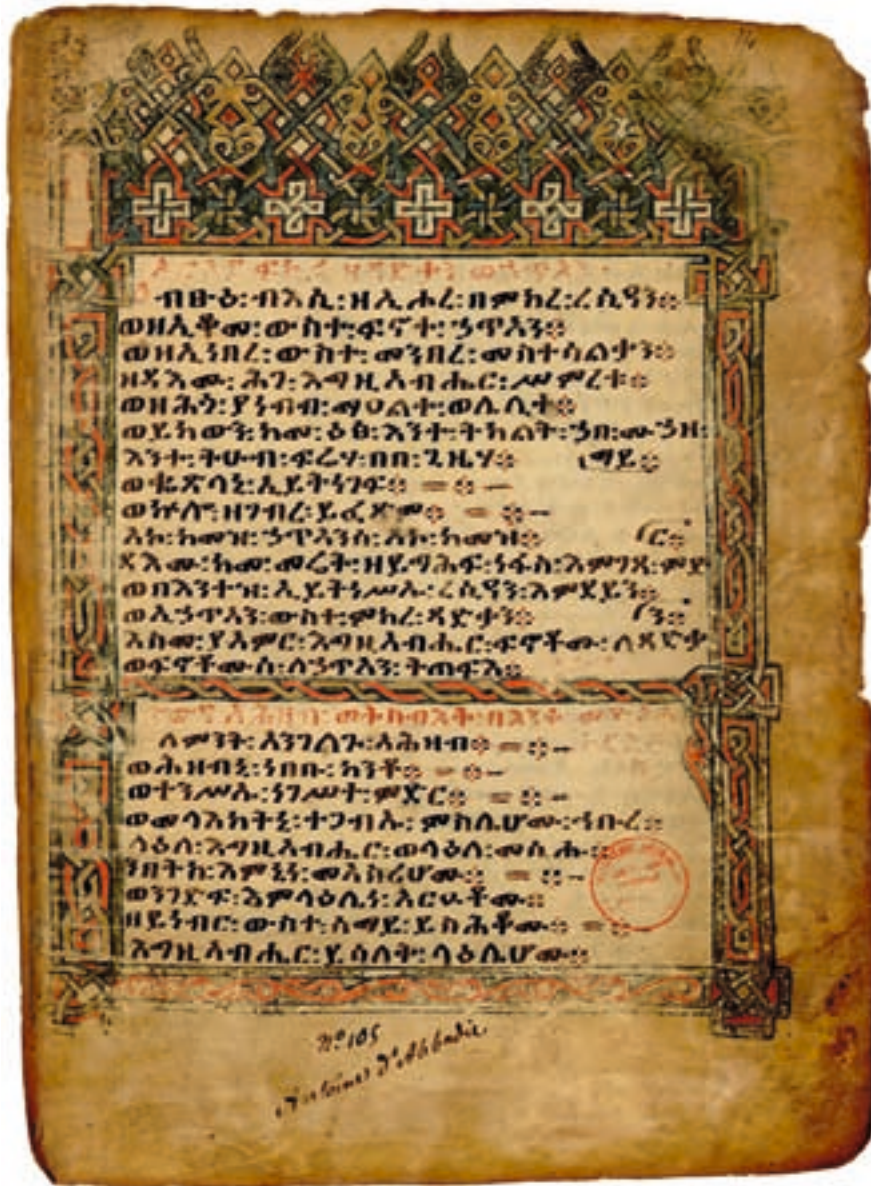 ብፁዕ፡ብእሲ፡ዘኢሖረ፡በምክረ፡ረሲዓን።
ወዘኢቆመ፡ውስተ፡ፍኖተ፡ኃጥአን።
ወዘኢነበረ፡ውስተ፡መንበረ፡መስተሳልቃን።
ዘዳእሙ፡ሕገ፡እግዚአብሔር፡ሥምረቱ።
ወዘሕጎ፡ያነብብ፡መዐልተ፡ወሌሊተ።
ወይከውን፡ከመ፡ዕፅ፡እንተ፡ትክልት፡ኀበ፡ሙኃዘ፡
እንተ፡ትሁብ፡ፍሬሃ፡በበ፡ጊዜሃ። ማይ።
ወቈጽላኒ፡ኢይትነገፍ።
ወኵሎ፡ዘገብረ፡ይፌጽም።
አኮ፡ከመዝ፡ኃጥኣንስ፡አኮ፡ከመዝ። ር።
ዳእሙ፡ከመ፡መሬት፡ዘይግሕፍ፡ነፋስ፡እምገጸ፡ምድ
ወበእንተዝ፡ኢይትነሥኡ፡ረሲዓን፡እምደይን።
ወኢኃጥአን፡ውስተ፡ምክረ፡ጻድቃን። ን።
እስመ፡ያአምር፡እግዚአብሔር፡ፍኖቶሙ፡ለጻድቃ
ወፍኖቶሙሰ፡ለኃጥአን፡ትጠፍእ።
ለምንት፡አንገለጉ፡አሕዛብ።
ወሕዝብኒ፡ነበቡ፡ከንቶ።
ወተንሥኡ፡ነገሥተ፡ምድር።
ወመላእክትኒ፡ተጋብኡ፡ምስሌሆሙ፡ኅቡረ።
ላዕለ፡እግዚአብሔር፡ወላዕለ፡መሲሑ።
ንበትክ፡እምኔነ፡መኣሰሪሆሙ።
ወንገድፍ፡እምላዕሌነ፡አርዑቶሙ።
ዘይነብር፡ውስተ፡ሰማይ፡ይስሕቆሙ።
እግዚአብሔር፡ይሳለቅ፡ላዕሌሆሙ።
Nº 105
Antoine d'Abbadie